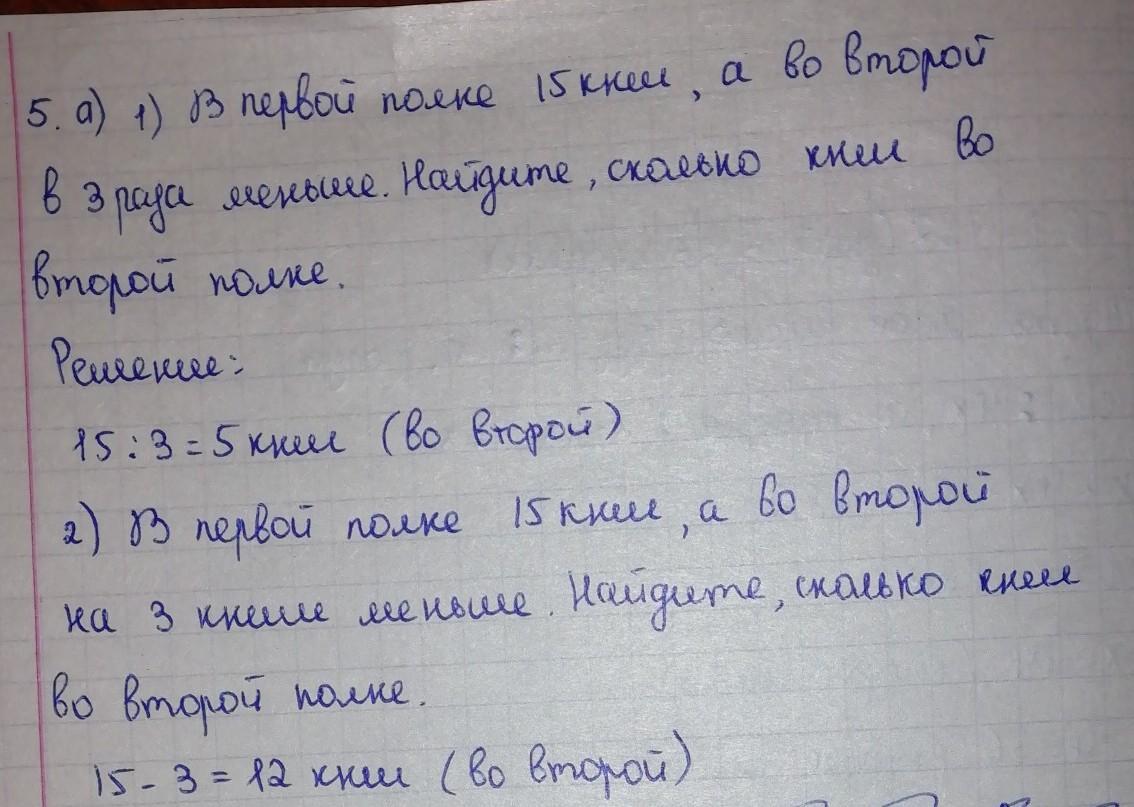 5. а) 1) В первой полке 15 книг, а во второй
в 3 раза меньше. Найдите, сколько книг во
второй полке.
Решение:
15 : 3 = 5 книг (во второй)
2) В первой полке 15 книг, а во второй
на 3 книги меньше. Найдите, сколько книг
во второй полке.
15 - 3 = 12 книг (во второй)